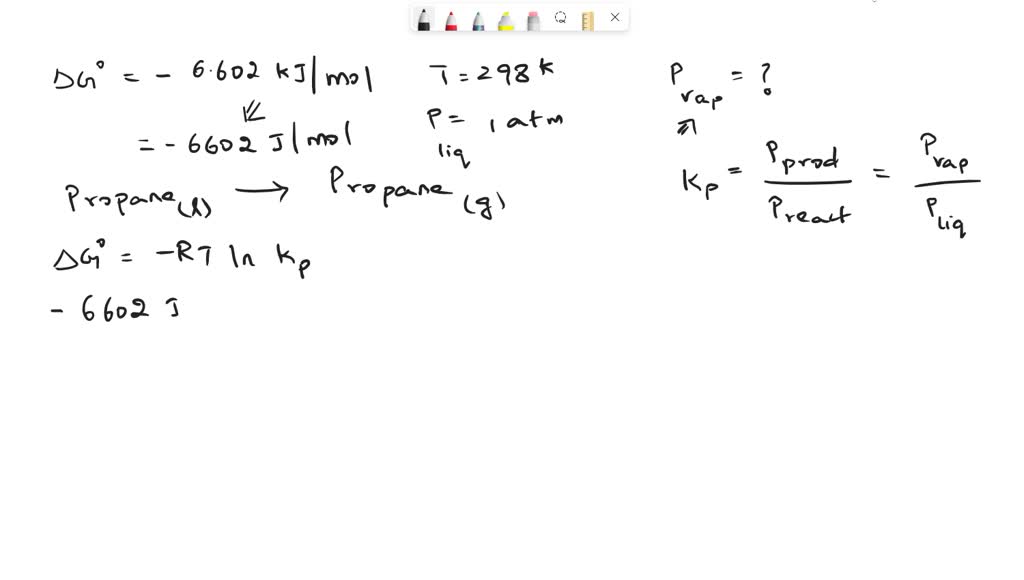 ΔG° = - 6.602 kJ/mol
= - 6602 J/mol
T = 298 K
P liq = 1 atm
P vap = ?
Kp = P prod / P react = P vap / P liq
Propane (l) → Propane (g)
ΔG° = -RT ln Kp
- 6602 J